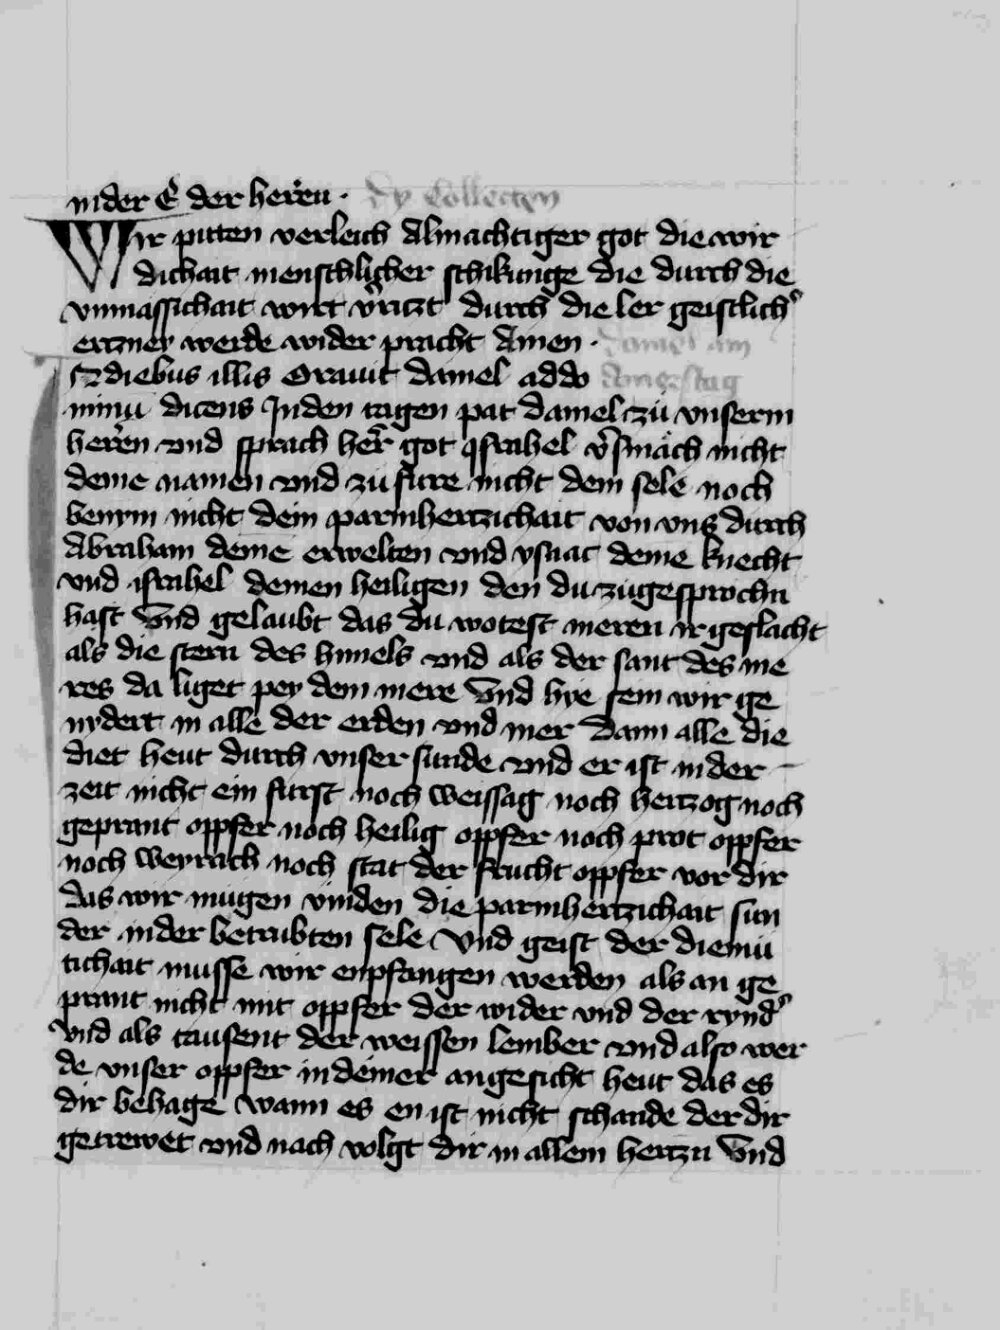 in der E der heren · Dy Collecten
Wir pitten verleich Almachtiger got die wir
dichait menschlicher schikunge die durch die
vnmassichait wirt v̉riczt durch die ler geistlich̉
ertzney werde wider pracht Amen · Daniel am
In diebus illis Orauit daniel ad do Amerstag
minū dicens In den tagen pat daniel czu vnserm
heren vnd sprach her got ysrahel v̉smäch nicht
deine namen vnd zu füre nicht dein sele noch
benym nicht dein parmhertzichait von vns durch
Abraham deine erwelten vnd ysaac deine knecht
vnd israhel deinen heiligen den du zugesprochn
hast Vnd gelaubt das du wotest meren ir geslacht
als die stern des himels vnd als der sant des me
res da liget pey dem mere Vnd hye sein wir ge
nydert in alle der erden vnd mer dann alle die
diet heut durch vnser sunde vnd er ist in der
zeit nicht ein furst noch weissag noch hertzog noch
geprant oppfer noch heilig oppfer noch prot oppfer
noch weyrach noch stat der frucht oppfer vor dir
das wir mugen vinden die parmhertzichait sun
der in der betrubten sele Vnd geist der diemu
tichait musse wir enpfangen werden als an ge
prant nicht mit oppfer der wider vnd der rynd̉
Vnd als tausent der weissen lember vnd also wer
de vnser oppfer in deiner angesicht heut das es
dir behage wann es en ist nicht schande der dir
getrewet vnd nach volgt dir in allem hertzn Vnd